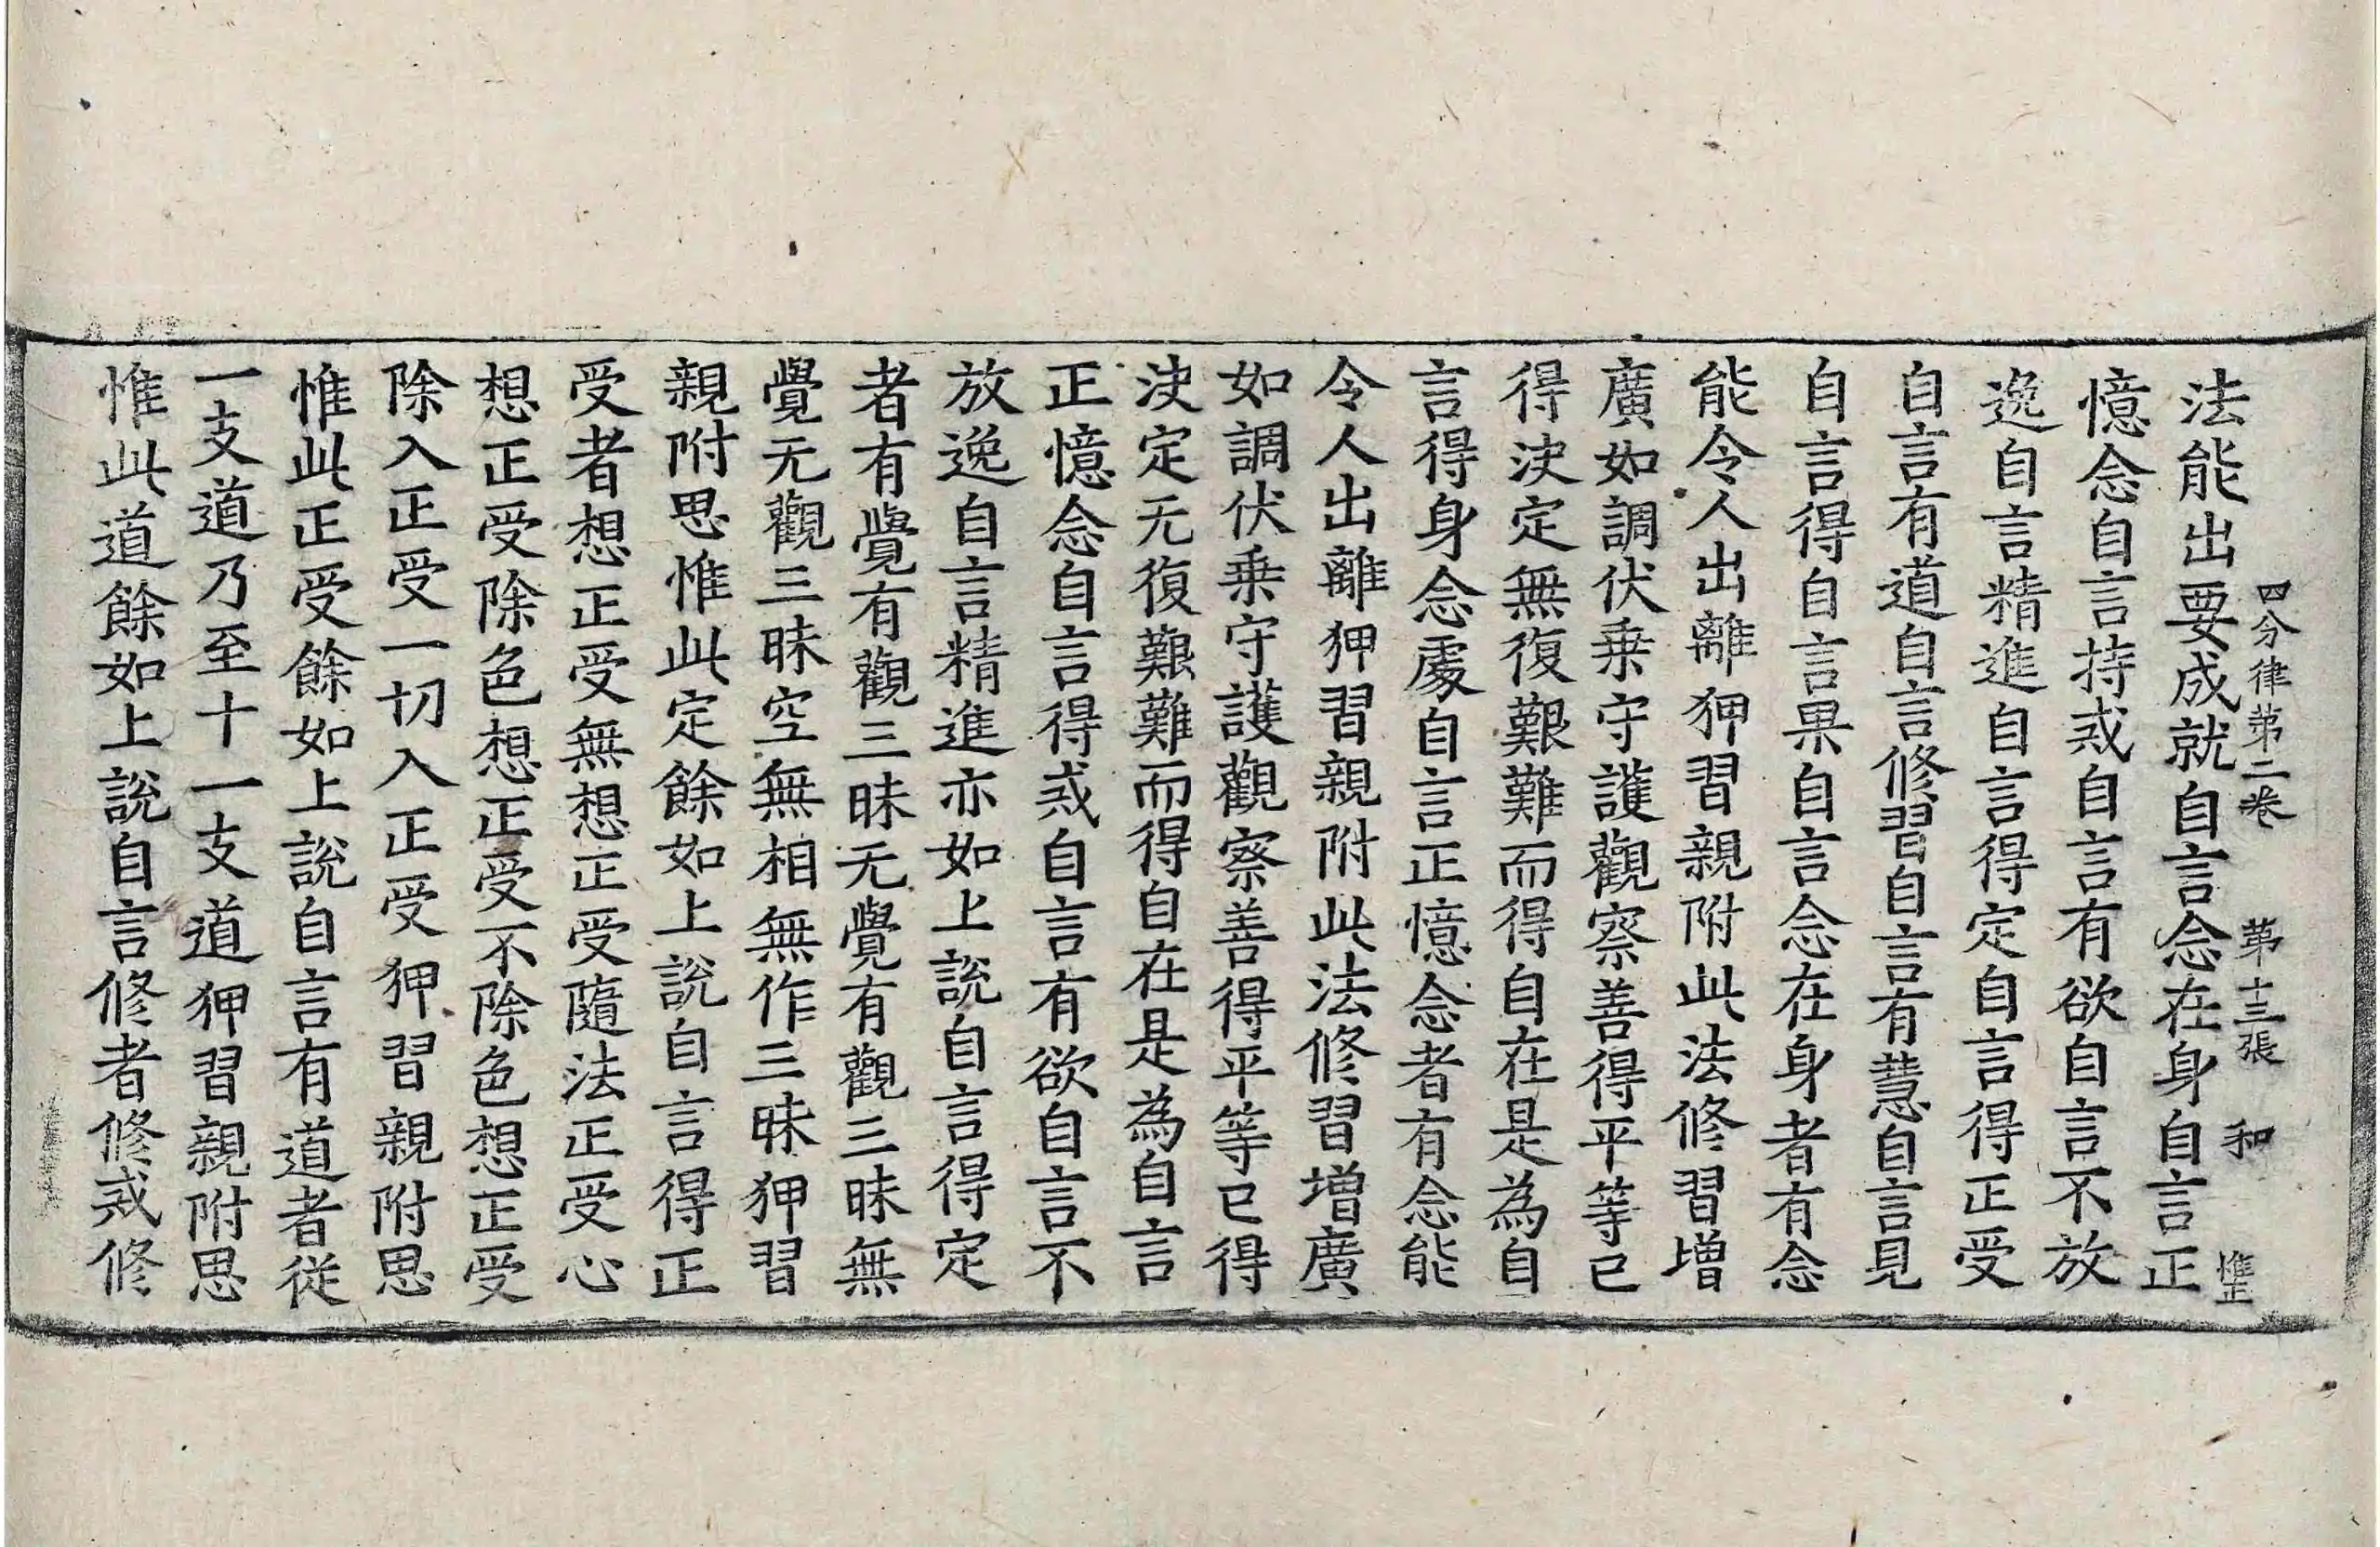 四分律第二卷 第十三張 和 惟正
法能出要成就自言念在身自言正
憶念自言持戒自言有欲自言不放
逸自言精進自言得定自言得正受
自言有道自言修習自言有慧自言見
自言得自言果自言念在身者有念
能令人出離狎習親附此法修習增
廣如調伏乗守護觀察善得平等已
得决定無復艱難而得自在是為自
言得身念處自言正憶念者有念能
令人出離狎習親附此法修習增廣
如調伏乗守護觀察善得平等已得
决定无復艱難而得自在是為自言
正憶念自言得戒自言有欲自言不
放逸自言精進亦如上說自言得定
者有覺有觀三昧无覺有觀三昧無
覺无觀三昧空無相無作三昧狎習
親附思惟此定餘如上說自言得正
受者想正受無想正受隨法正受心
想正受除色想正受不除色想正受
除入正受一切入正受狎習親附思
惟此正受餘如上說自言有道者從
一支道乃至十一支道狎習親附思
惟此道餘如上說自言修者修戒修